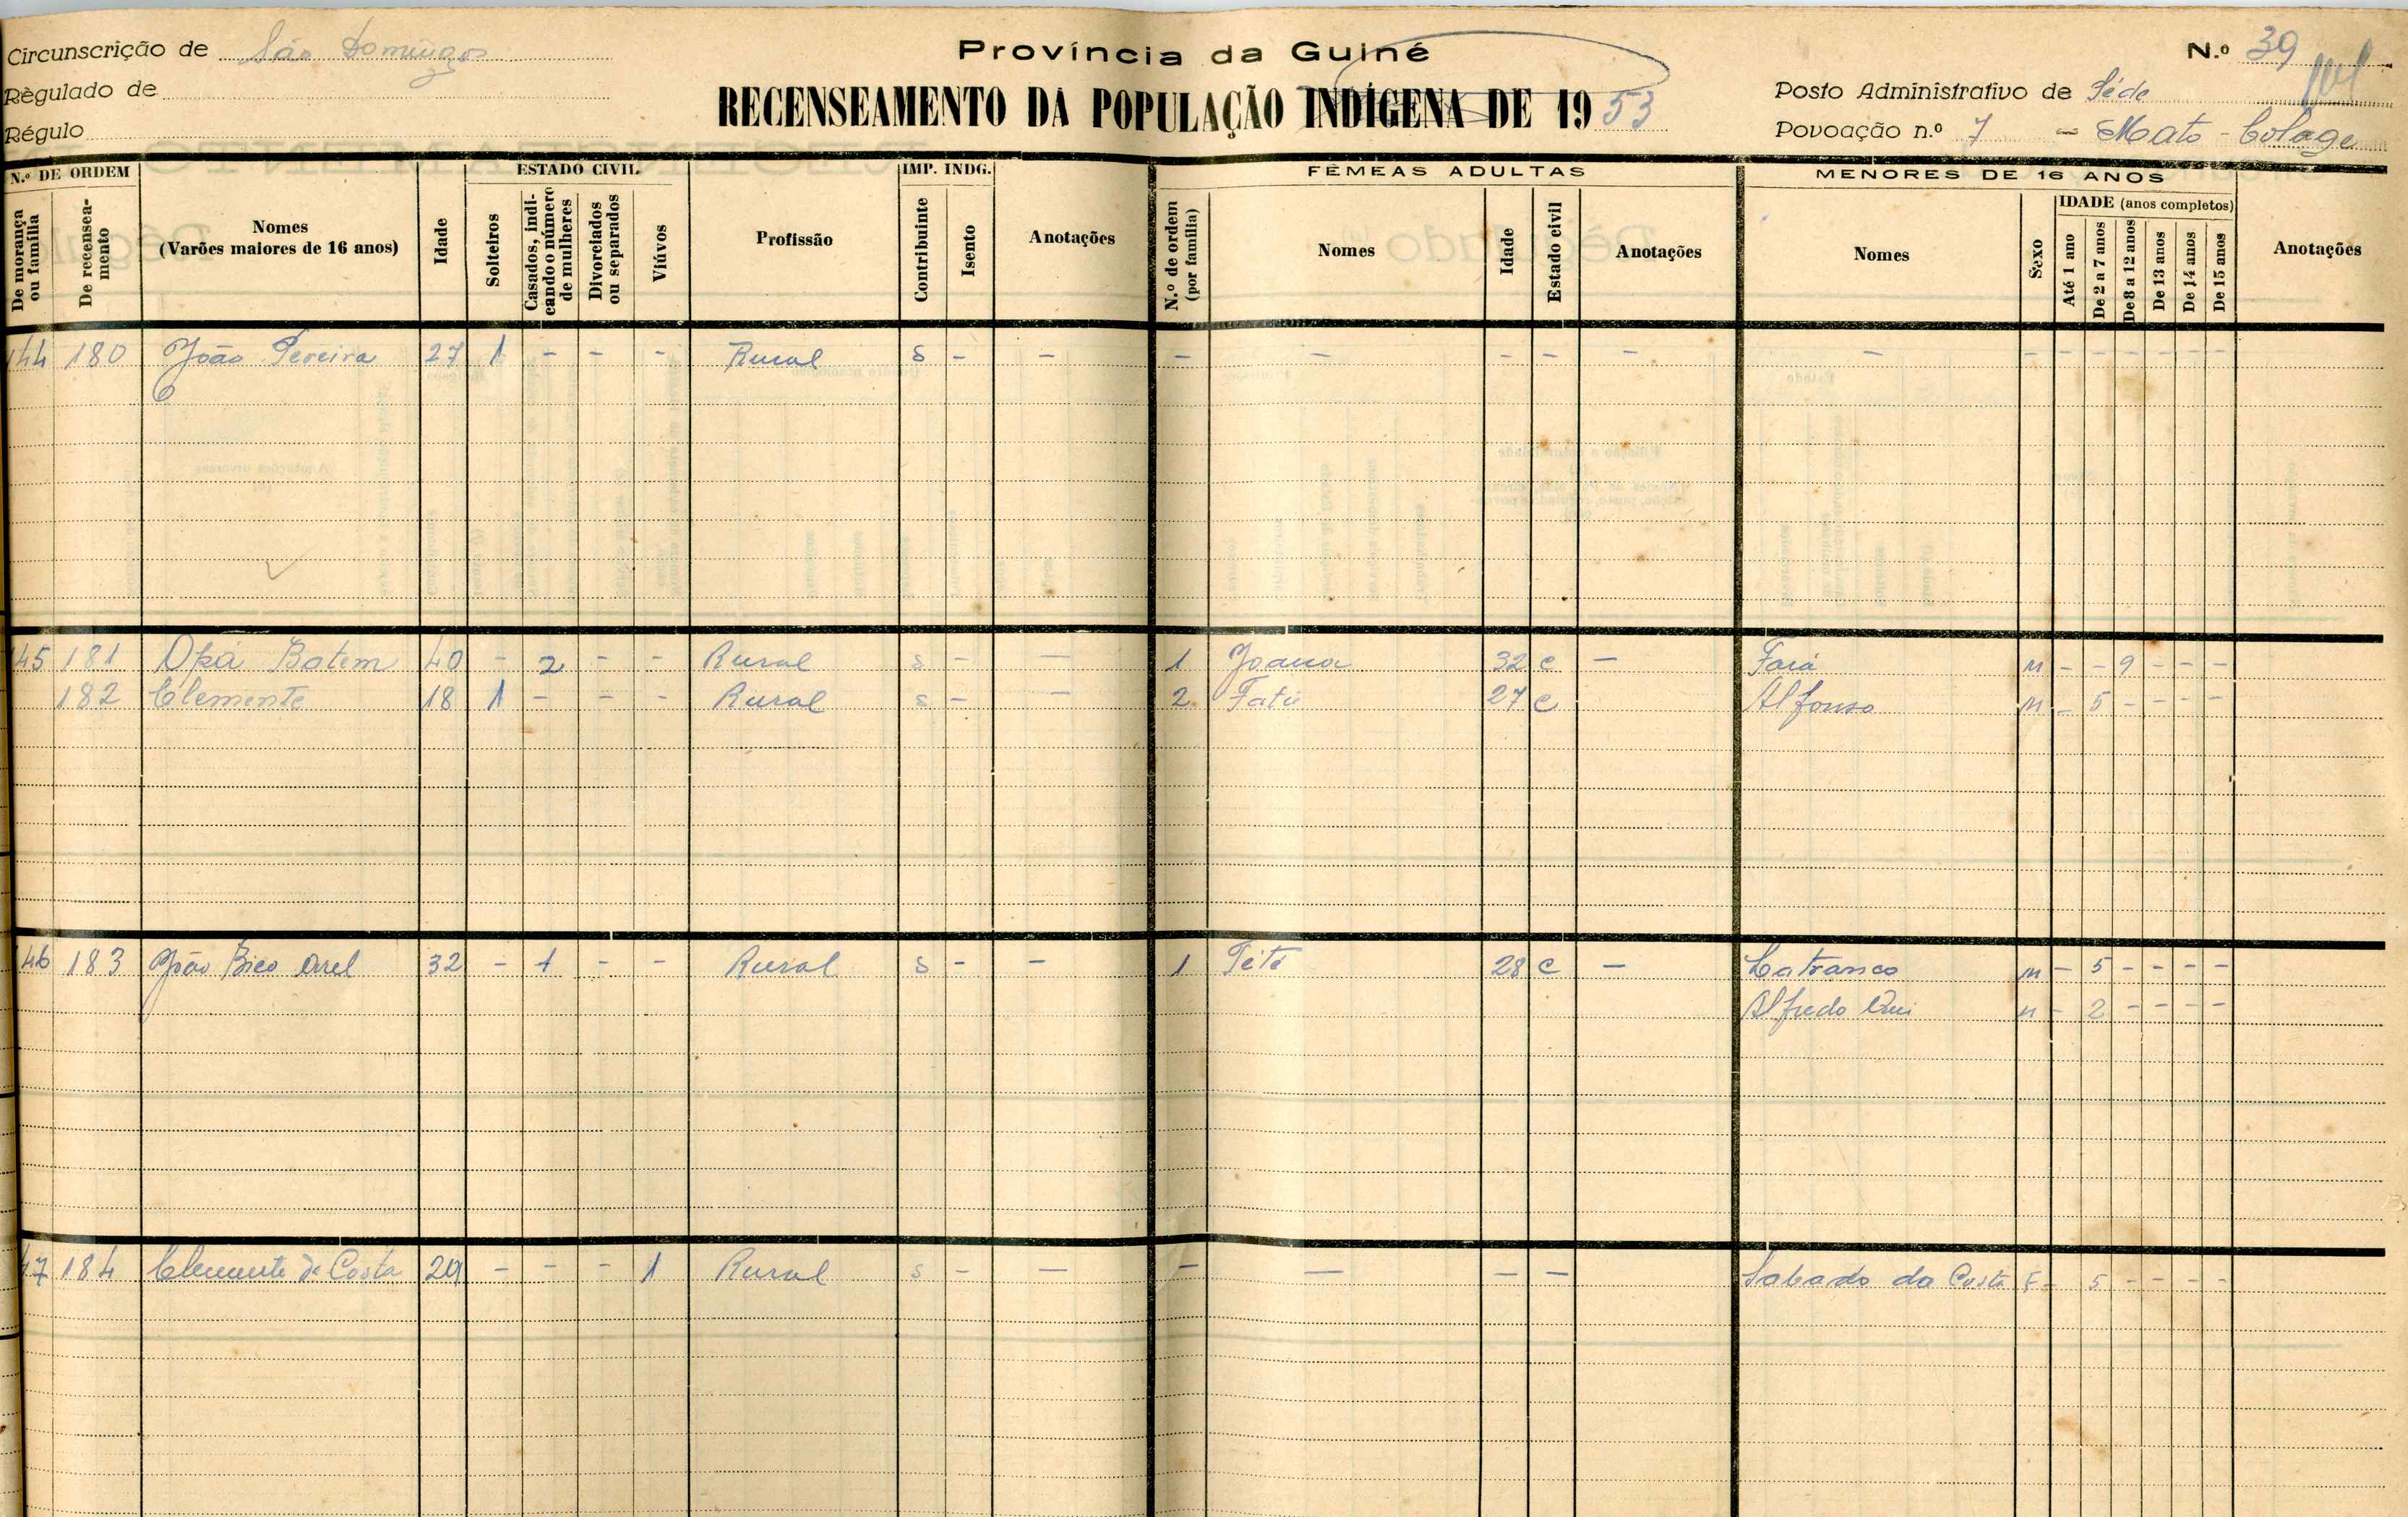 Província da Guiné
RECENSEAMENTO DA POPULAÇÃO INDÍGENA DE 1953
Circunscrição de São Domingos
Règulado de
Régulo
N.º 39
Posto Administrativo de Séde
Povoação n.º 7 - Mato - Colage
N.º DE ORDEM
De morança ou família
De recenseamento
Nomes
(Varões maiores de 16 anos)
Idade
ESTADO CIVIL
Solteiros
Casados, indicando o número de mulheres
Divorciados ou separados
Viúvos
Profissão
IMP. INDG.
Contribuinte
Isento
Anotações
FÊMEAS ADULTAS
N.º de ordem (por família)
Nomes
Idade
Estado civil
Anotações
MENORES DE 16 ANOS
Nomes
Sexo
IDADE (anos completos)
Até 1 ano
De 2 a 7 anos
De 8 a 12 anos
De 13 anos
De 14 anos
De 15 anos
Anotações
144 180 João Pereira 27 1 - - - Rural S - - - - - - - - - - - - - - -
145 181 Opá Batem 40 - 2 - - Rural S - - 1 Joana 32 C - Fará M - - 9 - - -
182 Clemente 18 1 - - - Rural S - - 2 Fatú 27 C Alfonso M - 5 - - - -
146 183 João Bico 32 - 1 - - Rural S - - 1 Teté 28 C - M - 5 - - - -
Alfredo M - 2 - - - -
47 184 Clemente da Costa 29 - - - 1 Rural S - - - - - - Sabado da Costa F - 5 - - - -